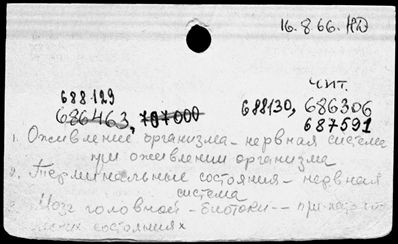 16.8.66. НД
чит.
688129
686463, 787000
688130, 686306
687591
1. Оживление организма - нервная система
при оживлении организма
2. Терминальные состояния - нервная
система
3. Мозг головной - биотоки -- при
состояниях